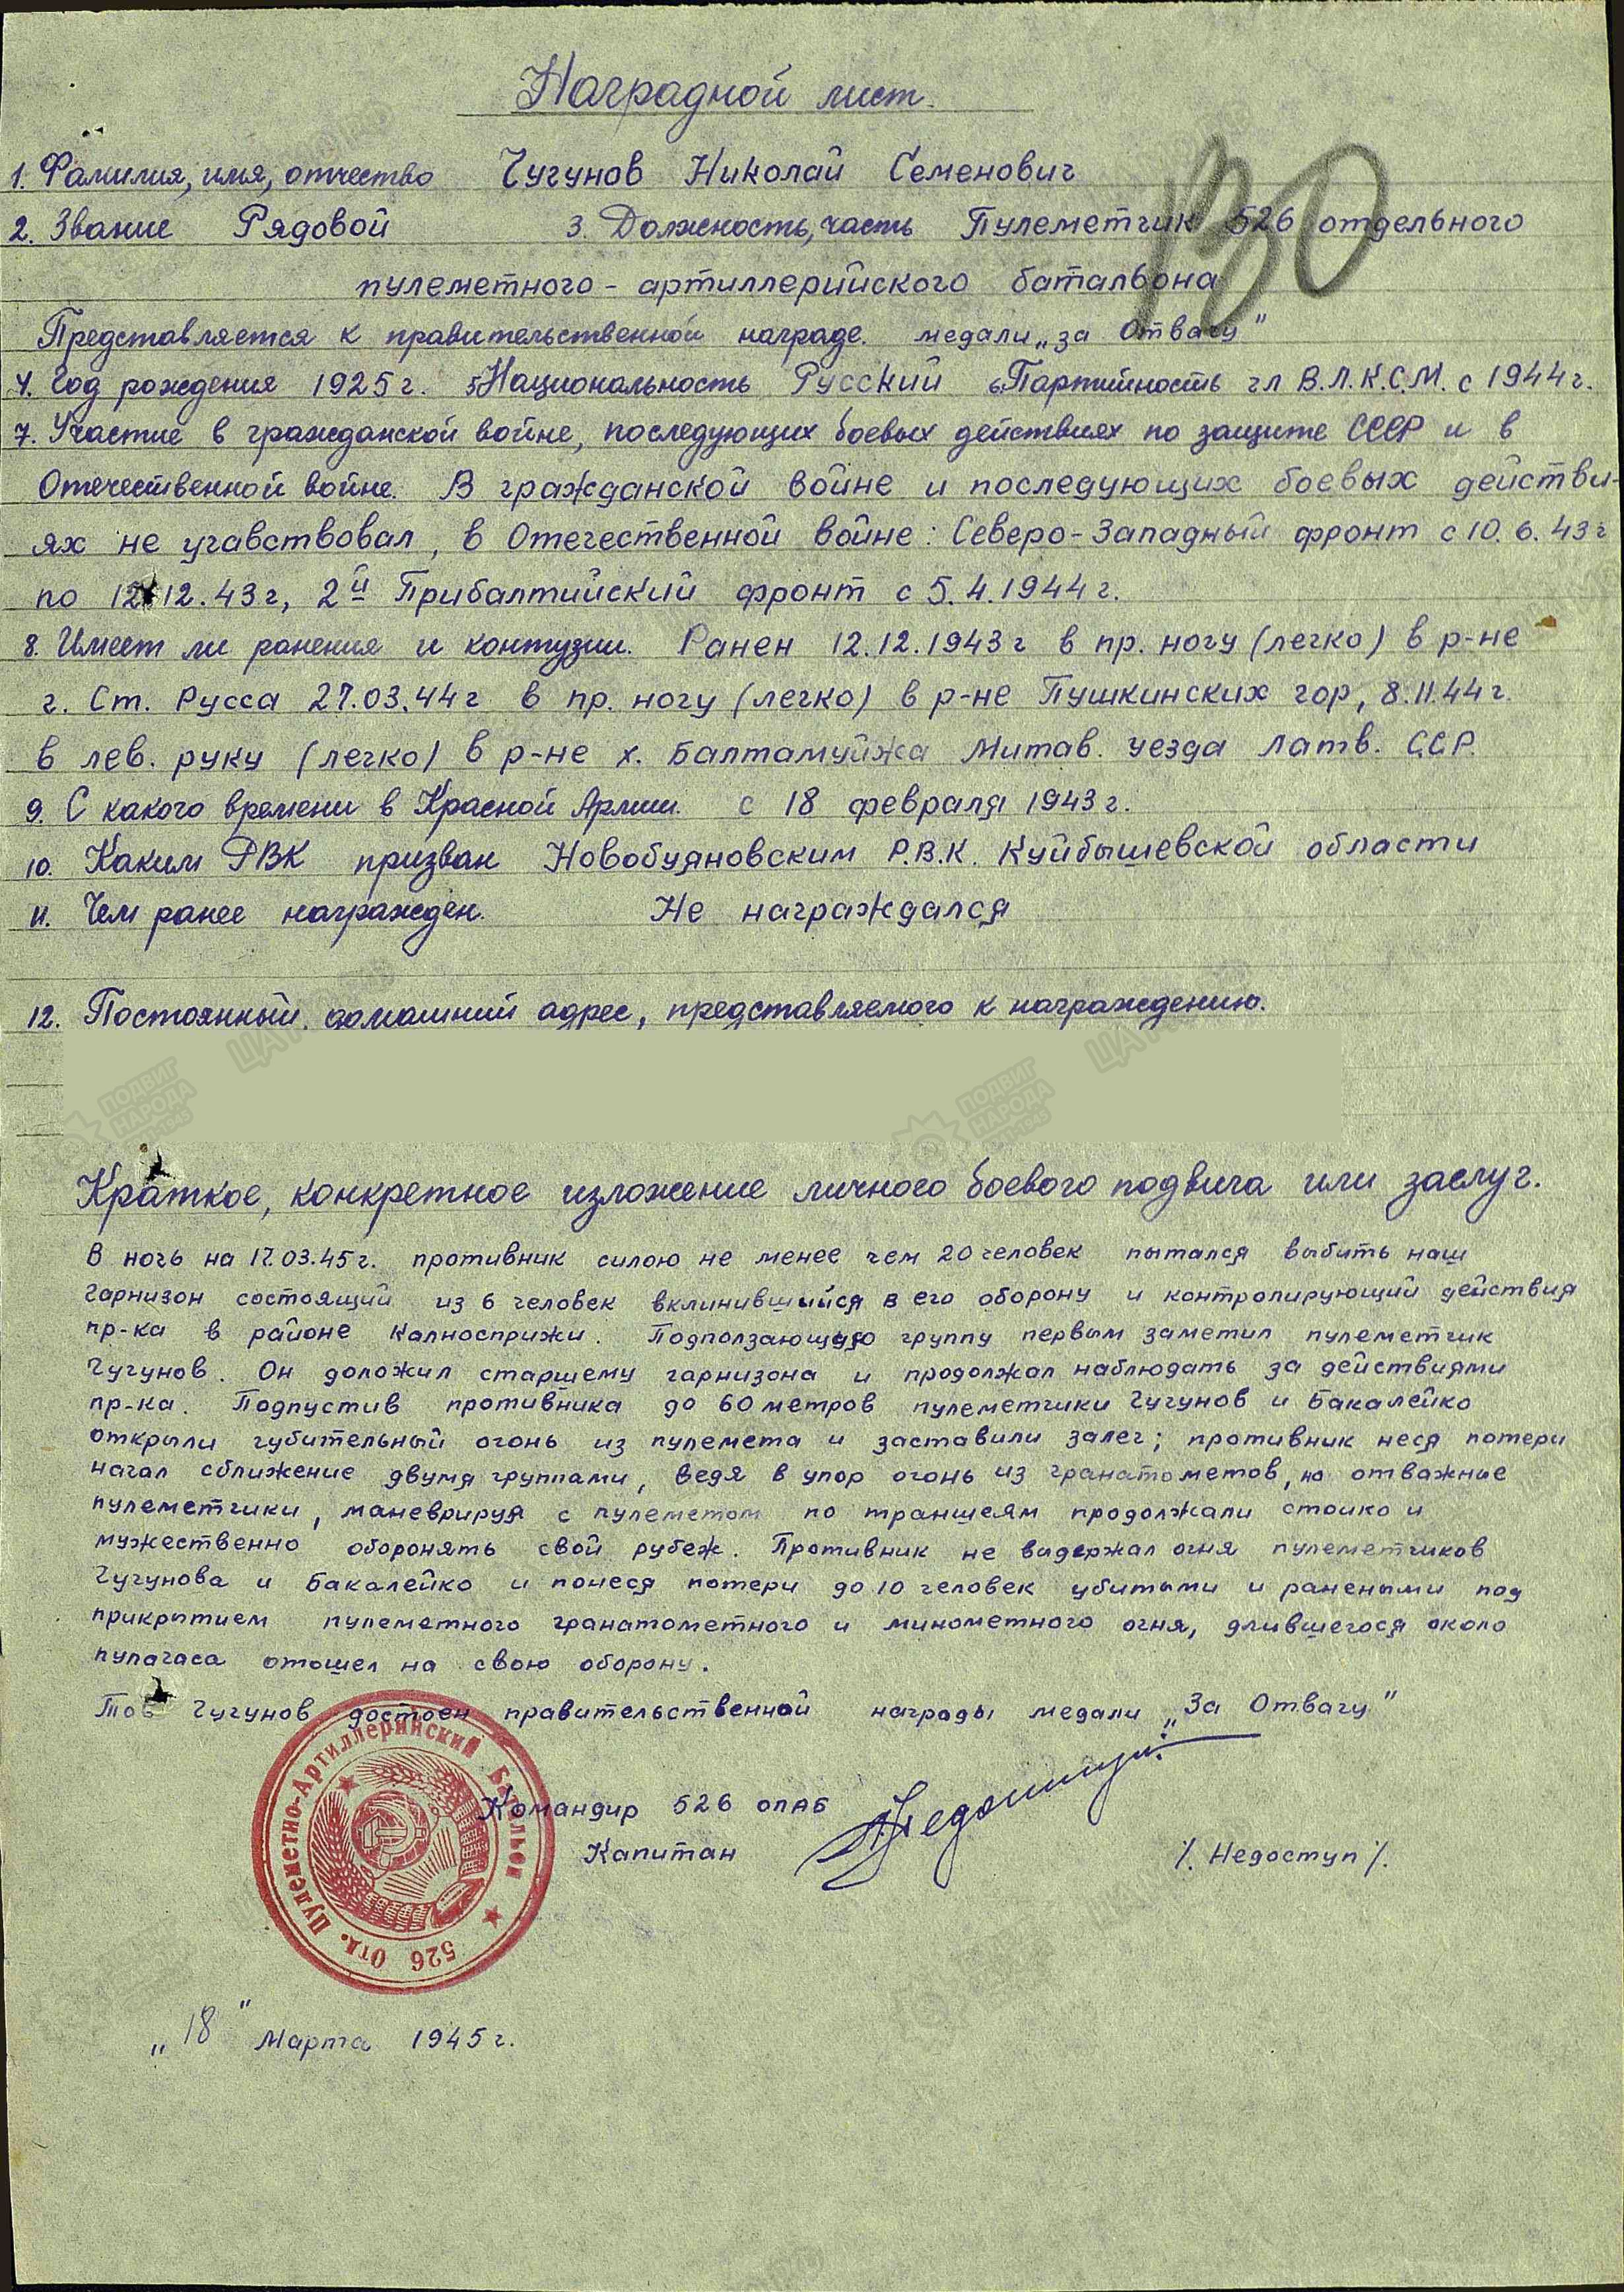 Наградной лист.
130
1. Фамилия, имя, отчество Чугунов Николай Семенович
2. Звание Рядовой 3. Должность, часть Пулеметчик 526 отдельного
пулеметного-артиллерийского батальона
Представляется к правительственной награде. медали „за Отвагу"
4. Год рождения 1925 г. 5. Национальность Русский 6. Партийность чл В.Л.К.С.М. с 1944 г.
7. Участие в гражданской войне, последующих боевых действиях по защите СССР и в
Отечественной войне. В гражданской войне и последующих боевых действи-
ях не учавствовал, в Отечественной войне: Северо-Западный фронт с 10.6.43 г
по 12.12.43 г, 2й Прибалтийский фронт с 5.4.1944 г.
8. Имеет ли ранения и контузии. Ранен 12.12.1943 г в пр. ногу (легко) в р-не
г. Ст. Русса 27.03.44 г в пр. ногу (легко) в р-не Пушкинских гор, 8.11.44 г.
в лев. руку (легко) в р-не х. Балтамуйжа Митав. уезда Латв. ССР.
9. С какого времени в Красной Армии. с 18 февраля 1943 г.
10. Каким РВК призван Новобуяновским Р.В.К. Куйбышевской области
11. Чем ранее награжден. Не награждался
12. Постоянный домашний адрес, представляемого к награждению.
ПОДВИГ НАРОДА
ПОДВИГ НАРОДА
Краткое, конкретное изложение личного боевого подвига или заслуг.
В ночь на 17.03.45 г. противник силою не менее чем 20 человек пытался выбить наш
гарнизон состоящий из 6 человек вклинившийся в его оборону и контролирующий действия
пр-ка в районе Калносприжи. Подползающую группу первым заметил пулеметчик
Чугунов. Он доложил старшему гарнизона и продолжал наблюдать за действиями
пр-ка. Подпустив противника до 60 метров пулеметчики Чугунов и Бакалейко
открыли губительный огонь из пулемета и заставили залег; противник неся потери
начал сближение двумя группами, ведя в упор огонь из гранатометов, но отважные
пулеметчики, маневрируя с пулеметом по траншеям продолжали стойко и
мужественно оборонять свой рубеж. Противник не видержал огня пулеметчиков
Чугунова и Бакалейко и понеся потери до 10 человек убитыми и ранеными под
прикрытием пулеметного гранатометного и минометного огня, длившегося около
пулачаса отошел на свою оборону.
Тов Чугунов достоен правительственной награды медали „За Отвагу"
526 Отд. Пулеметно-Артиллерийский Батальон
Командир 526 ОПАБ
Капитан /. Недоступ /.
„18" Марта 1945 г.